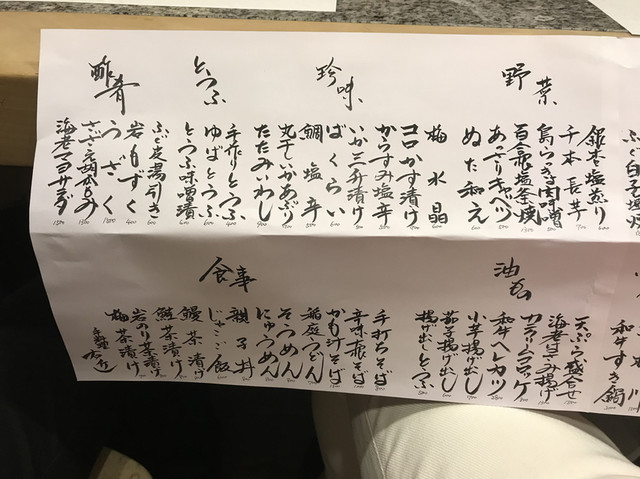 野菜
銀杏塩煎り
千本長芋
島らっきょ肉味噌
百合根塩釜焼
あっさりキャベツ
ぬた和え
珍味
梅水晶
コロかす漬け
からすみ塩辛
いか三升漬け
ばくらい
鯛塩辛
丸干しいかあぶり
たたみいわし
とうふ
手作りとうふ
ゆばとうふ
とうふ味噌漬
酢肴
ふぐ皮湯引き
岩もずく
うざく
さざえ胡瓜もみ
海老マヨサラダ
和牛すき鍋
油もの
天ぷら盛合せ
海老しんじょ揚げ
カラスミコロッケ
和牛ヘレカツ
小芋揚げ出し
茄子揚げ出し
揚げ出しとうふ
食事
手打ちそば
辛味大根そば
かも汁そば
稲庭うどん
そうめん
にゅうめん
親子丼
じゃこ飯
鰻茶漬け
鮭茶漬け
岩のり茶漬け
梅茶漬け